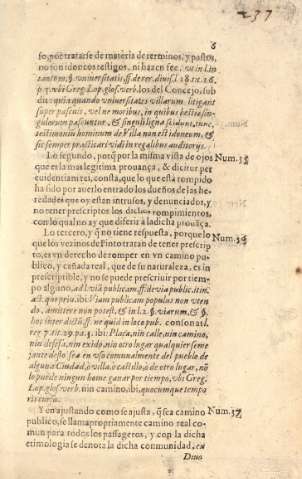 237
6
so, por tratarse de materia de terminos, y pastos,
no son idoneos testigos, ni hazen fee, ut in l. in
tantum, §. universitatis, ff. de rer. divis. l. 18. tit. 16.
p. 3. ubi Greg. Lop. glos. verb. los del Concejo, sub
dit: qui quando universitates villarum litigant
super pascuis, vel ne moribus, in quibus bestia sin-
gulorum pascuntur, & singuli ligna scindunt, tunc
testimonium hominum de Villa non est idoneum, &
sic semper practicari vidi in regalibus auditorijs.
Lo segundo, porq por la misma vista de ojos
Num. 35
que es la mas legitima prouança, & dicitur per
euidentiam rei, consta, que lo que està rompido
ha sido por auerlo entrado los dueños de las he-
redades que oy estan intrusos, y denunciados, y
no tener prescriptos los dichos rompimientos,
con lo qual no ay que diferir à la dicha prouãça.
Lo tercero, y q̃ no tiene respuesta, porque lo
Num. 36
que los vezinos de Pinto tratan de tener prescrip
to, es vn derecho de romper en vn camino pu-
blico, y cañada real, que de su naturaleza, es in
prescriptible, y no se puede prescriuir por tiem-
po alguno, ad l. viã publicam, ff. de via public. itin.
act. que priv. ibi: Viam publicam populus non uten
do, amittere non potest, & in l. 2. §. viarum, & §.
hoc inter dictũ, ff. ne quid in loco pub. consonat l.
7. tit. 29. p. 3. ibi: Plaça, nin calle, nin camino,
nin defesa, nin exido, nin otro lugar qualquier seme
jante desto sea en vso comunalmente del pueblo de
alguna Ciudad, ò villa, ò castillo, ò de otro lugar, nõ
lo puede ningun home ganar por tiempo, ubi Greg.
Lop. glos. verb. nin camino, ibi, quocumque tempo
ris cursu.
Y en ajustando como se ajusta, q̃ sea camino
Num. 37
publico, se llama propriamente camino real co-
mun para todos los passageros, y con la dicha
etimologia se denota la dicha comunidad, ex
Diuo